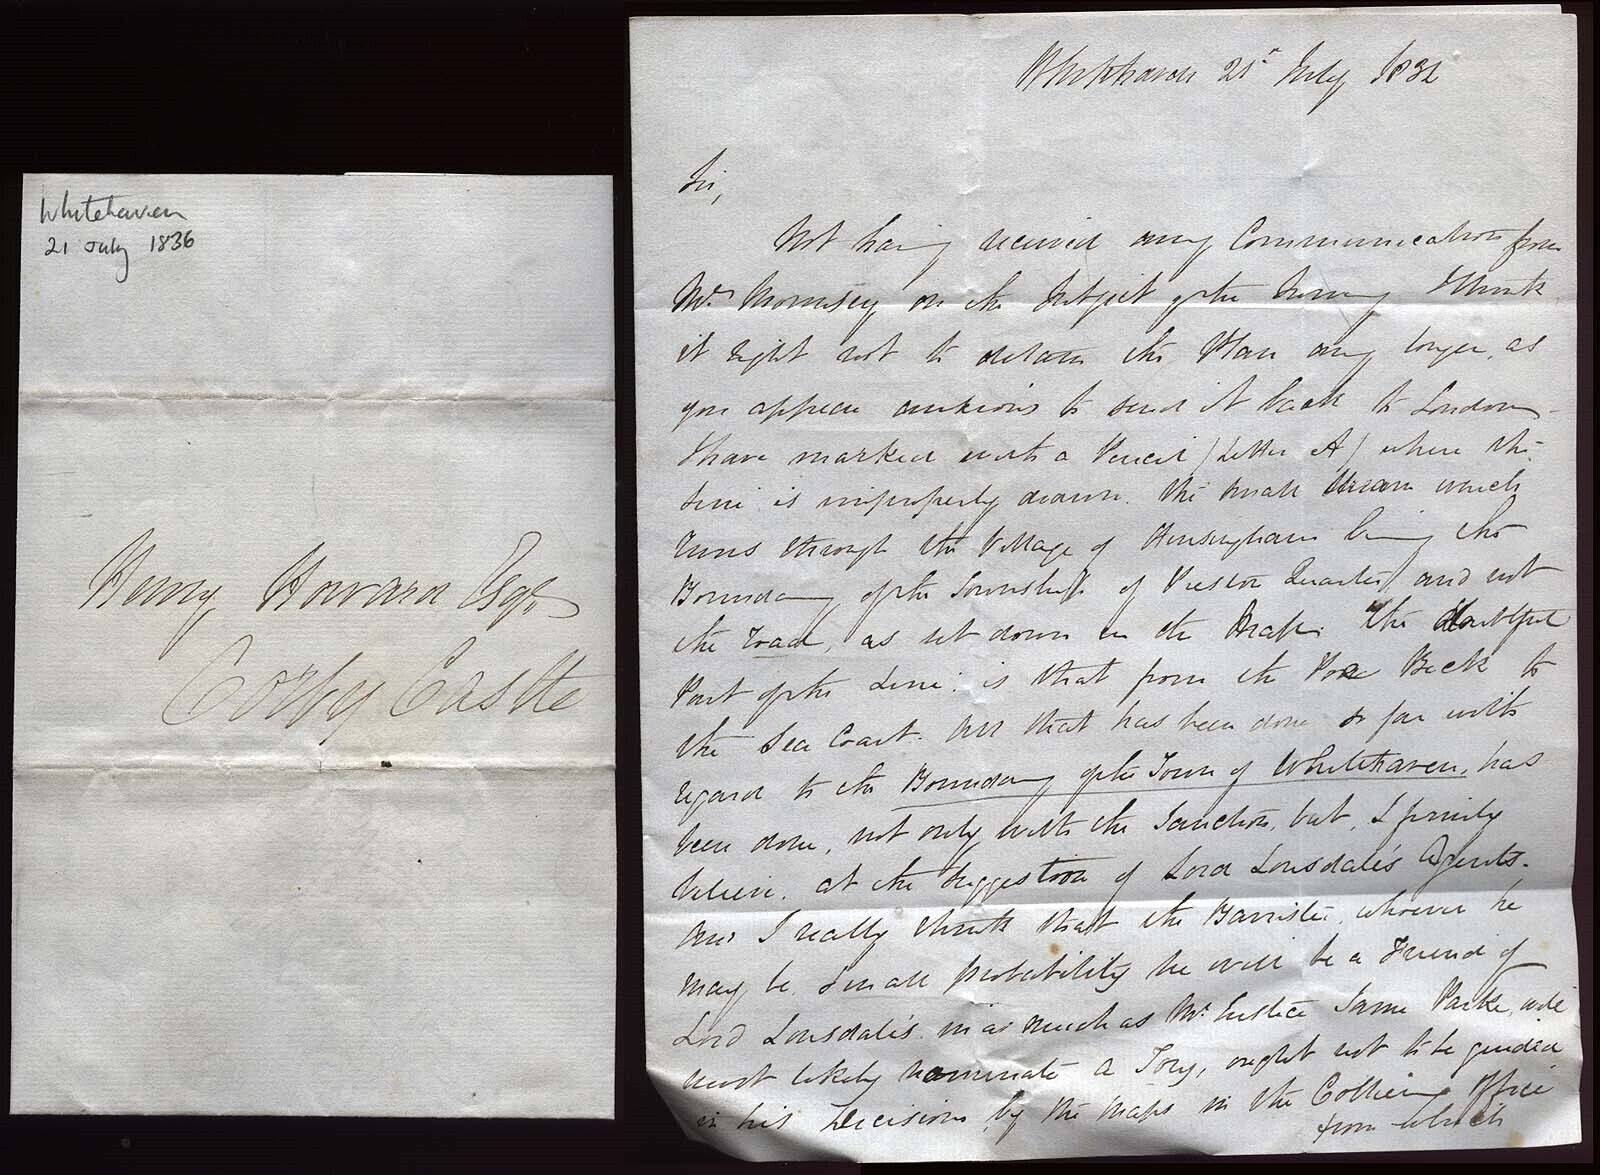 Whitehaven
21 July 1836
Henry Howard Esqr
Corby Castle
Whitehaven 21st July 1832
Sir,
Not having received any Communication from
Mr on the Subject of the I think
it right not to detain the Plan any longer, as
you appear anxious to send it back to London
I have marked with a Pencil (Letter A) where the
Line is improperly drawn. The small Stream which
runs through the Village of Hensingham being the
Boundary of the Township of Preston Quarter, and not
the road, as set down in the Draft. The doubtful
Part of the Line is that from the Pow Beck to
the Sea Coast. All that has been done so far with
regard to the Boundary of the Town of Whitehaven, has
been done, not only with the Sanction, but, I firmly
believe, at the Suggestion of Lord Lonsdale's Agents.
And I really think that the Barrister, whoever he
may be, & in all probability he will be a Friend of
Lord Lonsdale's in as much as Mr Justice James Parke, will
most likely nominate a Tory, ought not to be guided
in his Decisions by the Maps in the Colliery Office
from which